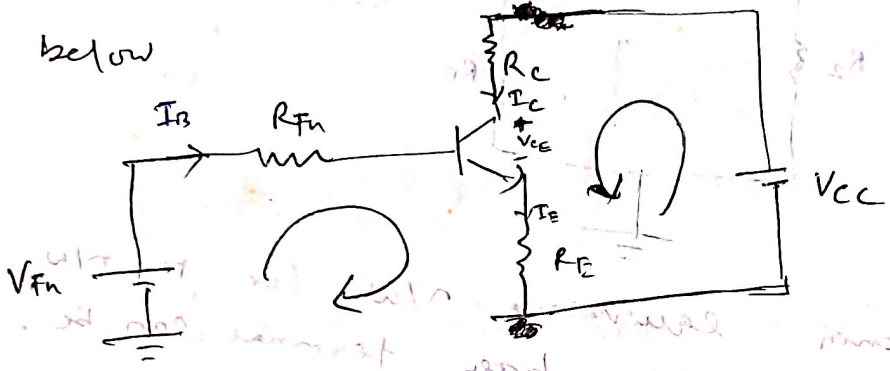 below
I_B
R_Th
R_C
I_C
+
V_CE
-
I_E
R_E
V_CC
V_Th